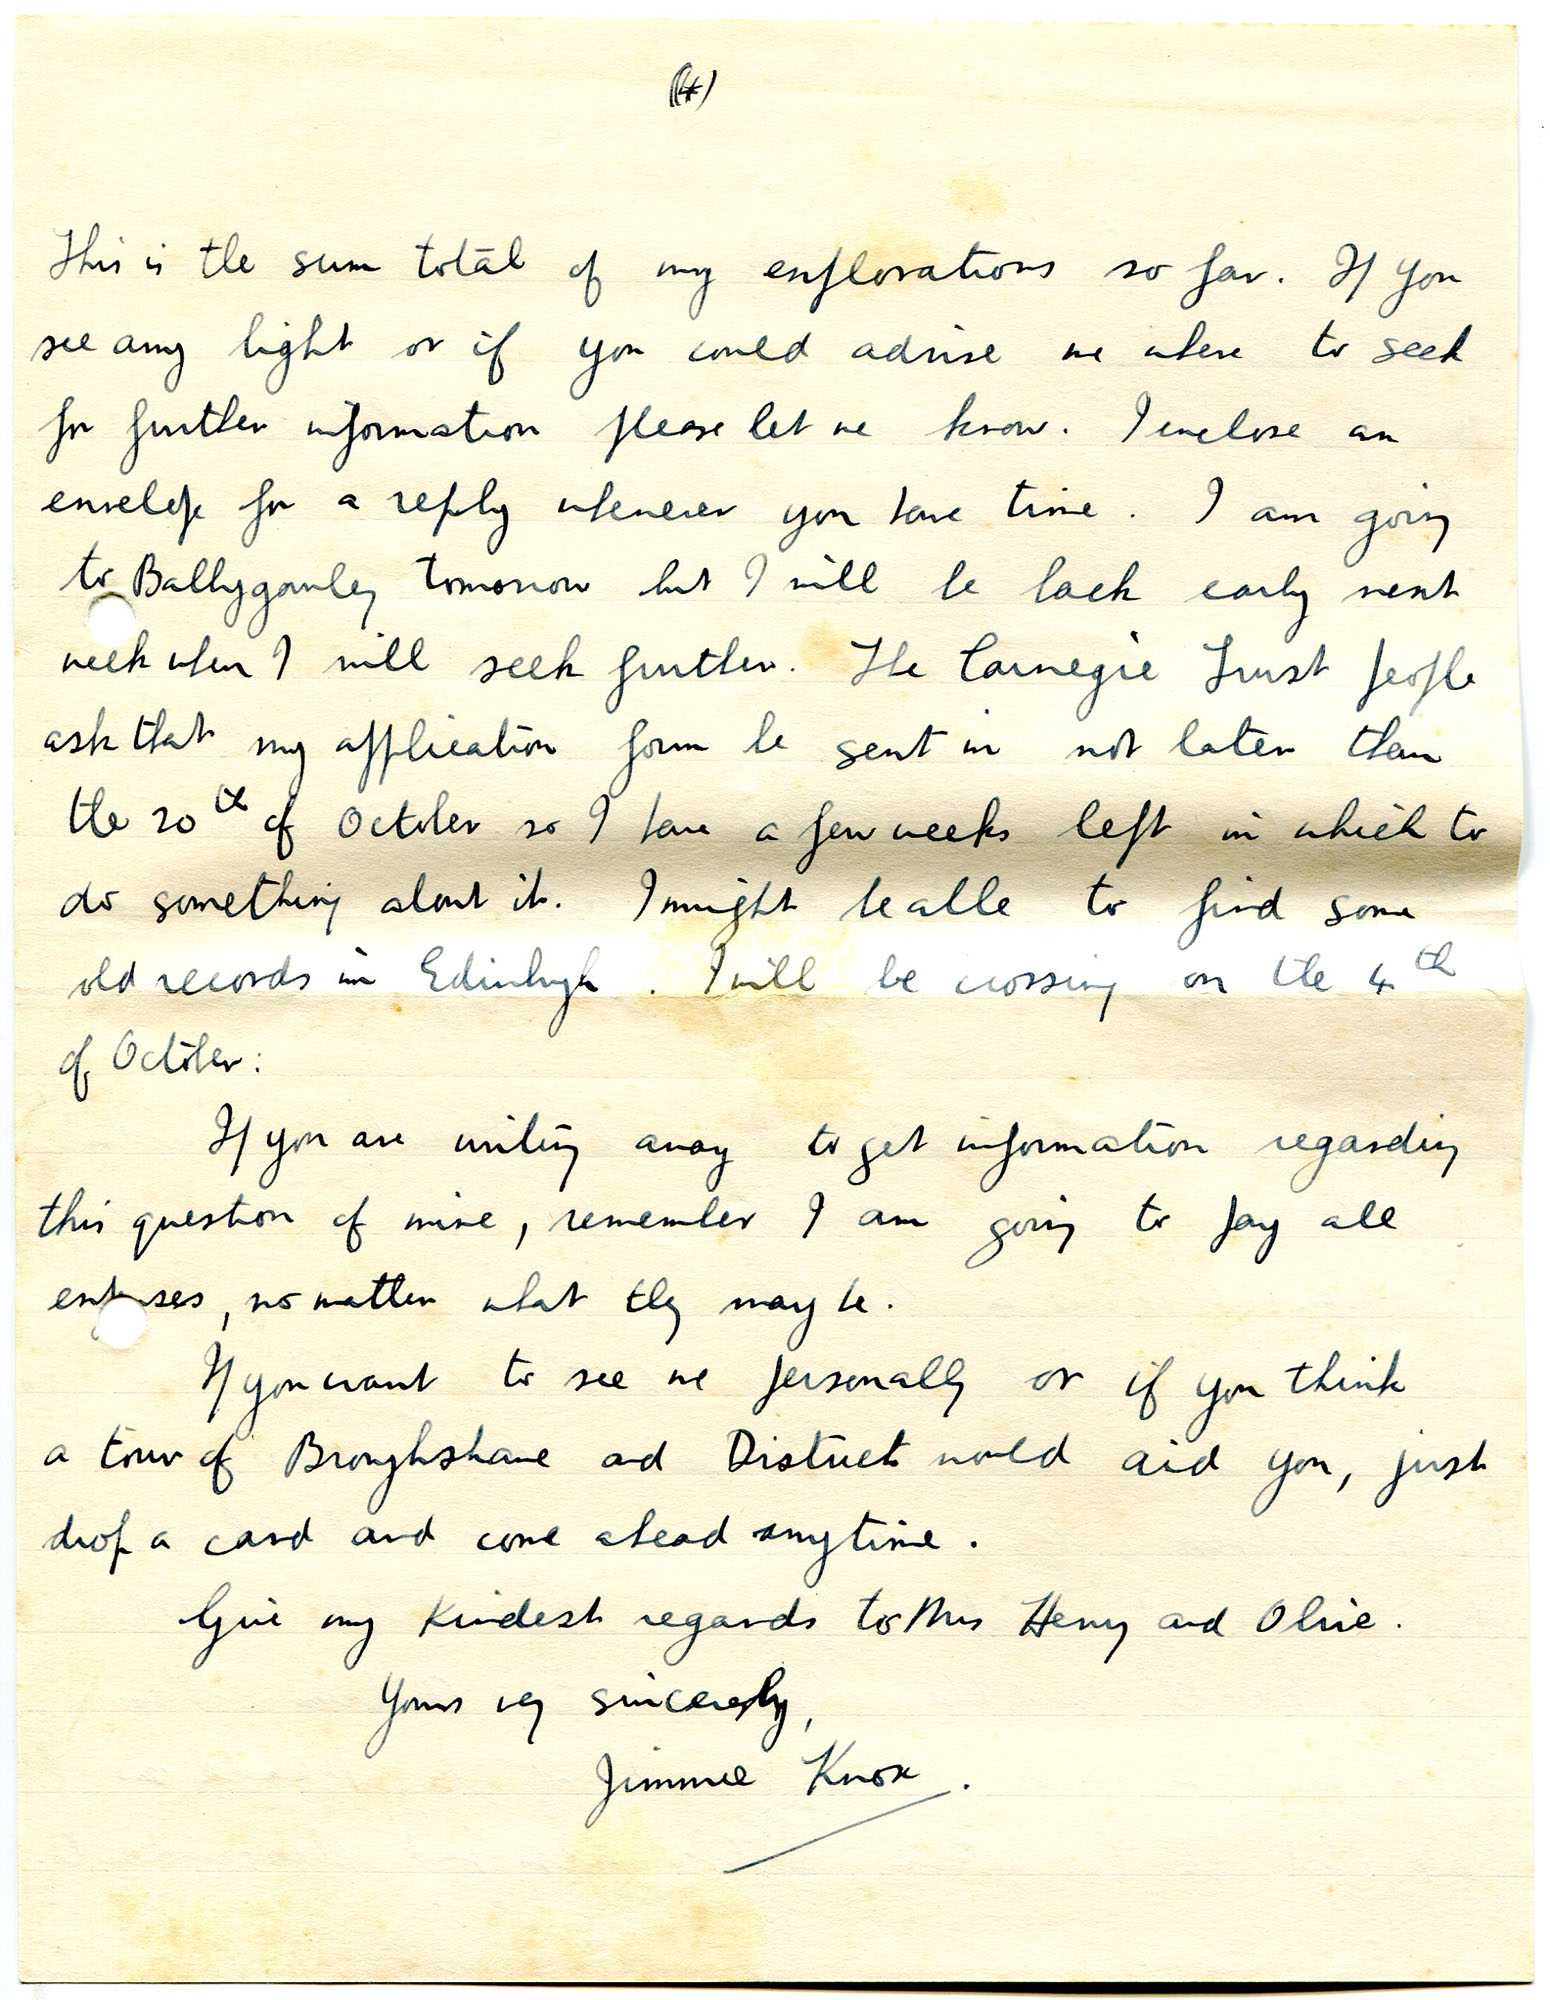 (4)
This is the sum total of my explorations so far. If you
see any light or if you could advise me where to seek
for further information please let me know. I enclose an
envelope for a reply whenever you have time. I am going
to Ballygawley tomorrow but I will be back early next
week when I will seek further. The Carnegie Trust people
ask that my application form be sent in not later than
the 20th of October so I have a few weeks left in which to
do something about it. I might be able to find some
old records in Edinburgh. I will be crossing on the 4th
of October:
If you are writing away to get information regarding
this question of mine, remember I am going to pay all
expenses, no matter what they may be.
If you want to see me personally or if you think
a tour of Broughshane and District would aid you, just
drop a card and come ahead anytime.
Give my kindest regards to Mrs Henry and Olive.
Yours very sincerely,
Jimmie Knox.